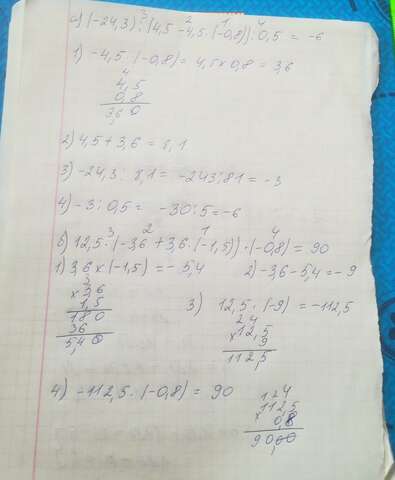 а) (-24,3) : (4,5 - 4,5 · (-0,8)) : 0,5 = -6
1) -4,5 · (-0,8) = 4,5 × 0,8 = 3,6
4
4,5
0,8
3,6 0
2) 4,5 + 3,6 = 8,1
3) -24,3 : 8,1 = -243 : 81 = -3
4) -3 : 0,5 = -30 : 5 = -6
б) 12,5 · (-3,6 + 3,6 · (-1,5)) · (-0,8) = 90
1) 3,6 × (-1,5) = -5,4
2) -3,6 - 5,4 = -9
3
× 3,6
1,5
180
36
5,40
3) 12,5 · (-9) = -112,5
2 4
× 12,5
9
112,5
4) -112,5 · (-0,8) = 90
1 2 4
× 112,5
0,8
90,00